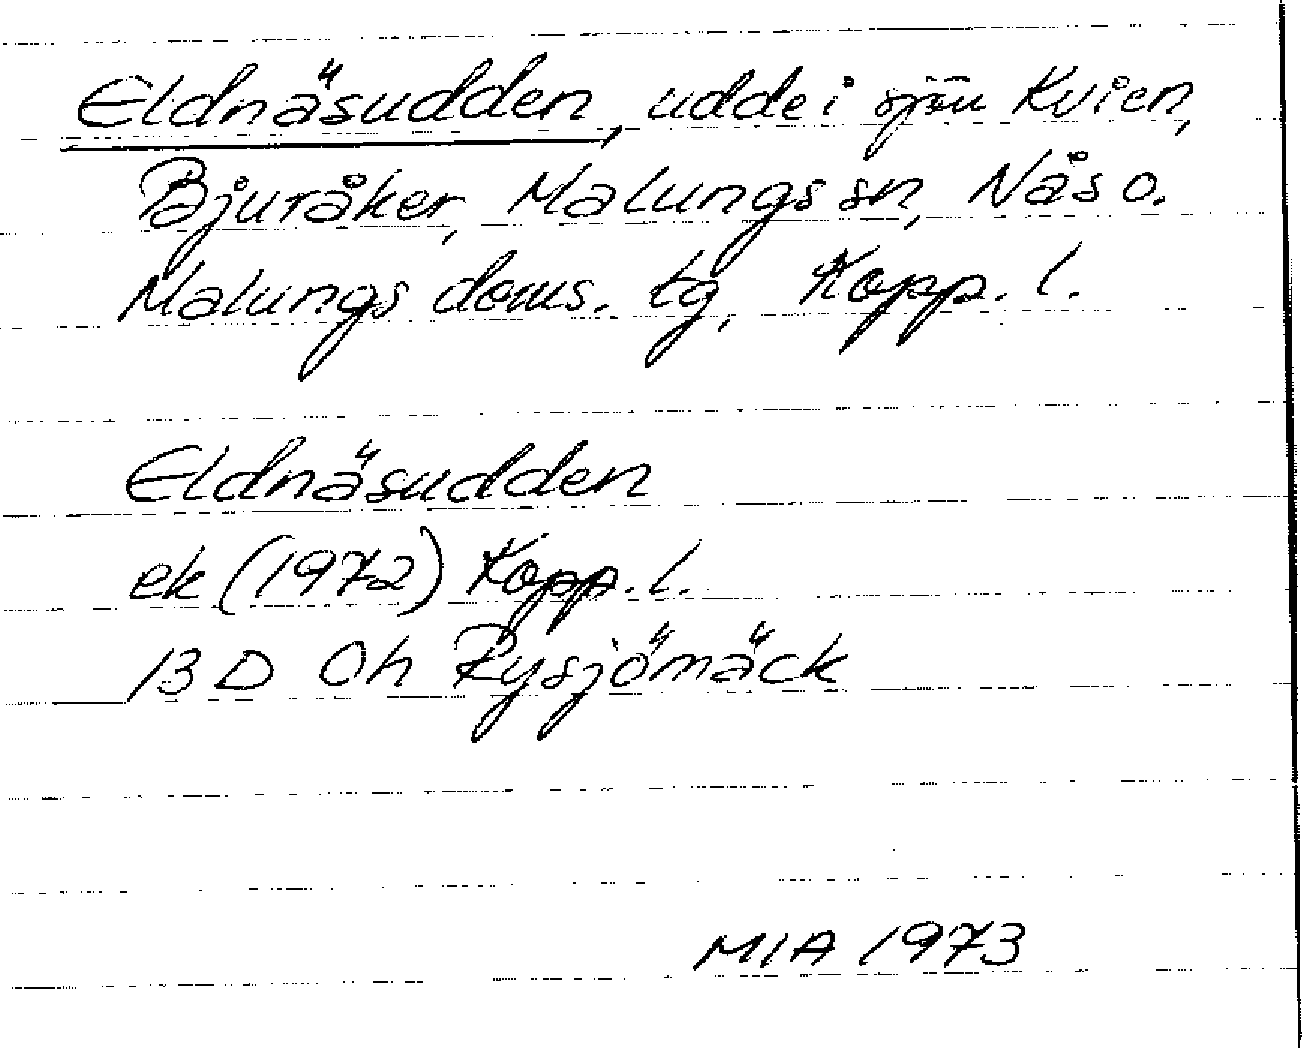 Eldnäsudden, udde i sjön Kvien,
Bjuråker, Malungs sn, Nås o.
Malungs doms. tg, Kopp. l.
Eldnäsudden
ek (1972) Kopp. l.
13 D 0h Rysjömäck
MIA 1973